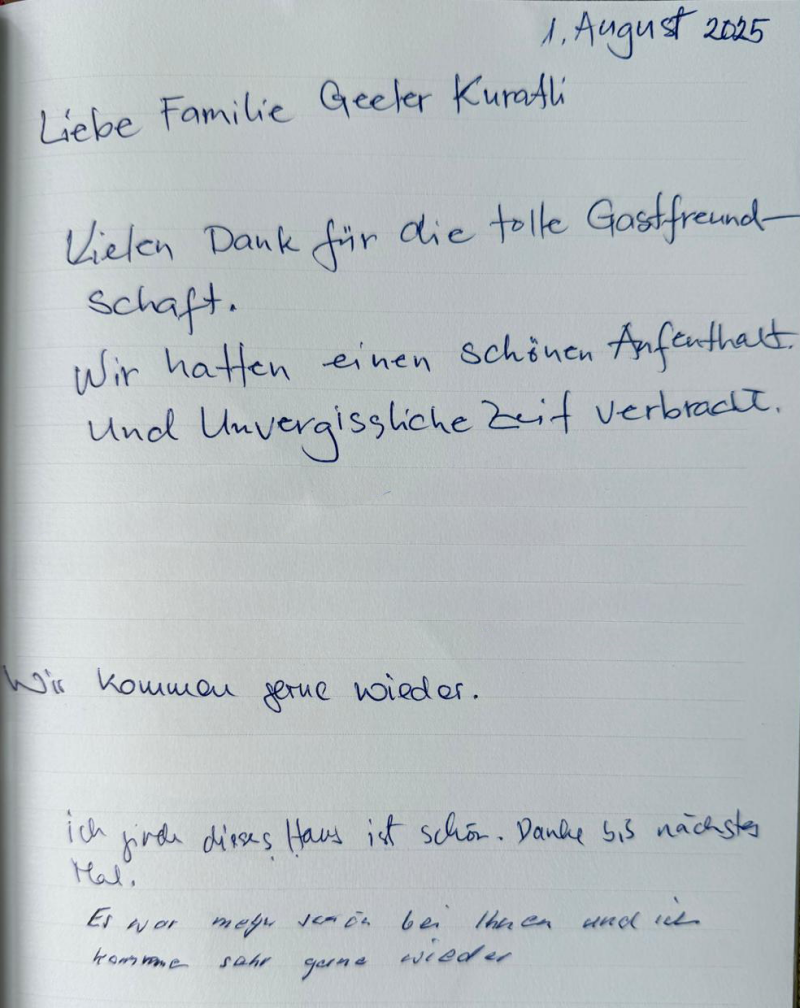 1. August 2025
Liebe Familie Geeler Kuratli
Vielen Dank für die tolle Gastfreund-
schaft.
Wir hatten einen schönen Aufenthalt.
Und Unvergissliche Zeit verbracht.
Wir kommen gerne wieder.
ich finde dieses Haus ist schön. Danke bis nächstes
Mal.
Es war schön bei Ihnen und ich
komme sehr gerne wieder